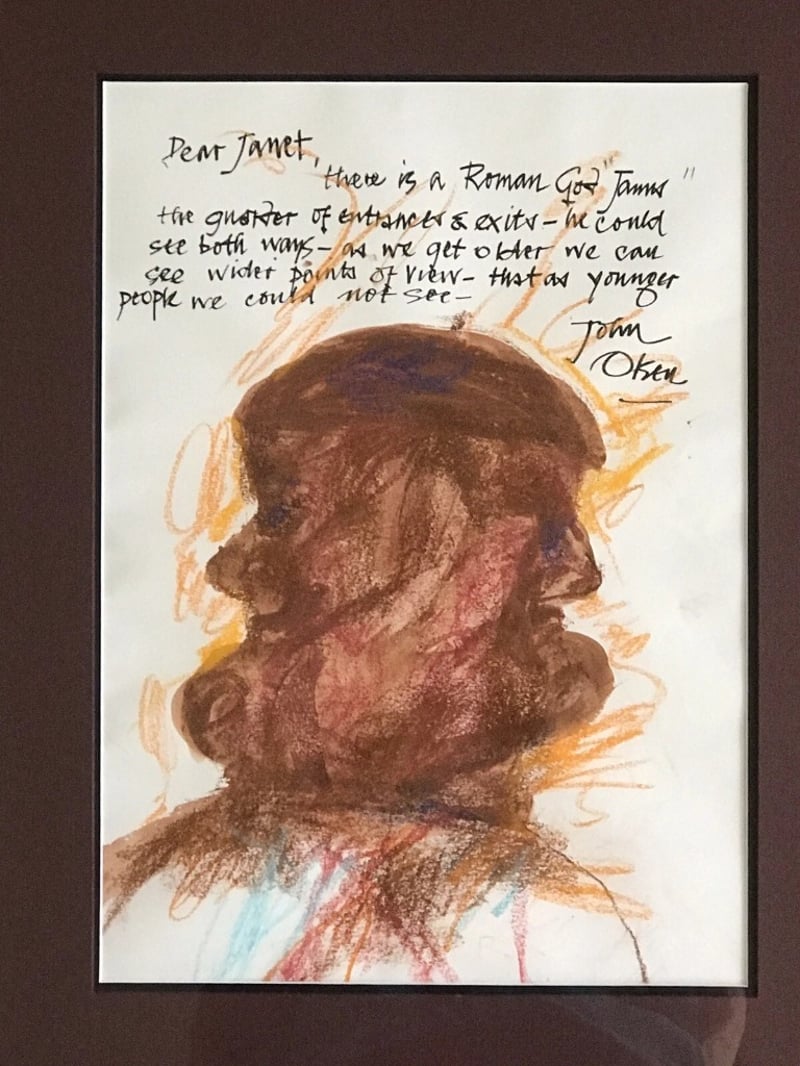 Dear Janet,
there is a Roman God "Janus"
the guarder of entrances & exits – he could
see both ways – as we get older we can
see wider points of view – that as younger
people we could not see –
John
Oken